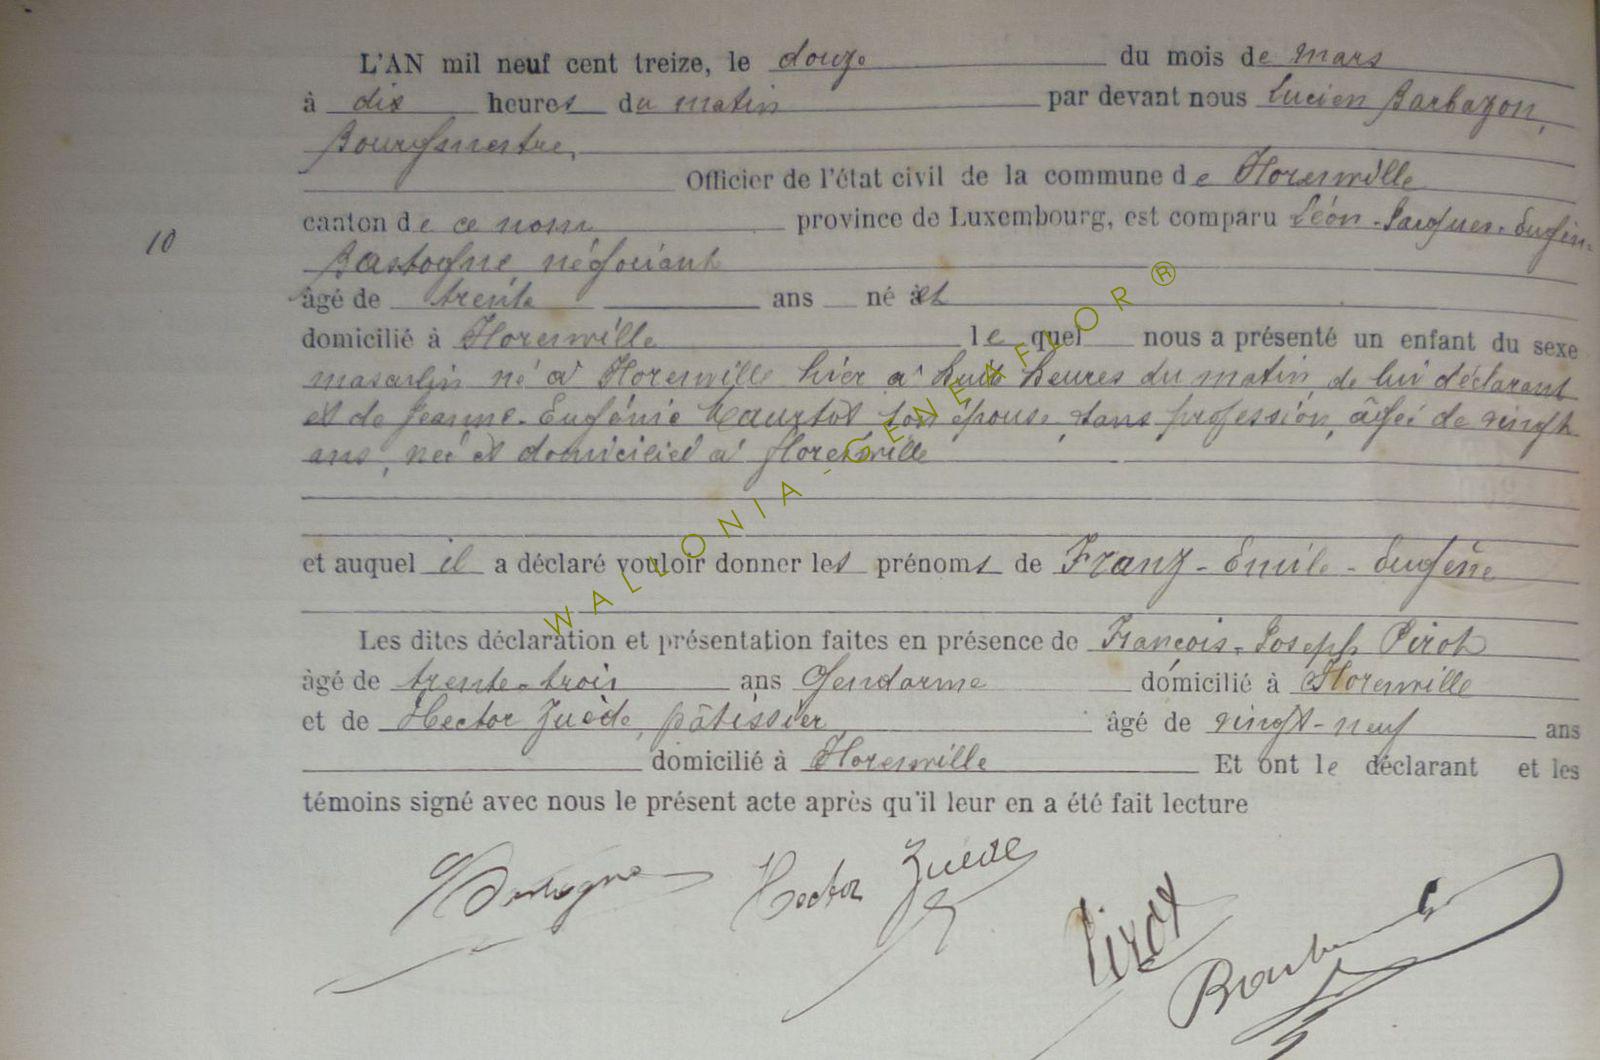 L'AN mil neuf cent treize, le douze du mois de mars
à dix heures du matin par devant nous Lucien Barbazon,
Bourgmestre,
Officier de l'état civil de la commune de Florenville
canton de ce nom province de Luxembourg, est comparu Léon-Jacques-Eugène-
10
Bastogne, négociant
âgé de trente ans né et
domicilié à Florenville lequel nous a présenté un enfant du sexe
masculin né à Florenville hier à huit heures du matin de lui déclarant
et de Jeanne-Eugénie son épouse, sans profession, âgée de vingt
ans, née et domiciliée à Florenville
et auquel il a déclaré vouloir donner les prénoms de Franz-Emile-Eugène
Les dites déclaration et présentation faites en présence de François-Joseph Pirot
âgé de trente-trois ans Gendarme domicilié à Florenville
et de Hector Zuède, pâtissier âgé de vingt-neuf ans
domicilié à Florenville Et ont le déclarant et les
témoins signé avec nous le présent acte après qu'il leur en a été fait lecture
Bastogne Hector Zuède
Pirot
WALLONIA-GENEAFLOR®